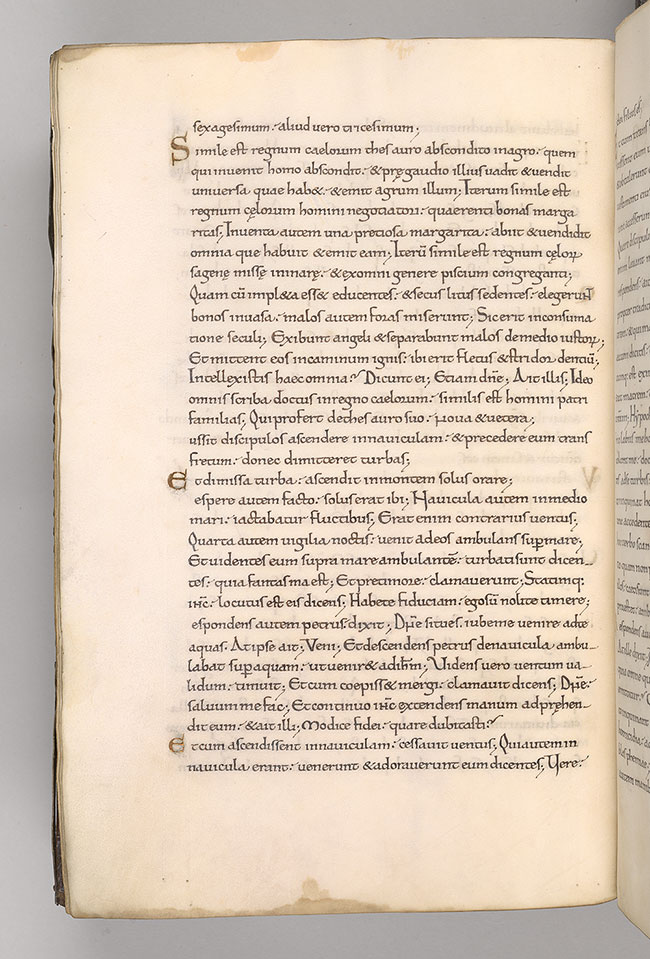 sexagesimum. aliud vero tricesimum;
Simile est regnum caelorum thesauro abscondito inagro. quem
qui invenit homo abscondit. & pręgaudio illius vadit & vendit
universa quae hab&. & emit agrum illum; Iterum simile est
regnum cęlorum homini negotiatori. quaerenti bonas marga
ritas; Inventa autem una preciosa margarita. abiit & vendidit
omnia que habuit & emit eam; Iterū simile est regnum cęlorꝝ
sagenę missę inmarę. & exomni genere piscium congreganti;
Quam cū impl&a ess& educentes. & secus litus sedentes. elegerunt
bonos invasa. malos autem foras miserunt; Sic erit inconsuma
tione seculi; Exibunt angeli & separabunt malos demedio iustorꝝ;
Et mittent eos incaminum ignis. ibi erit fletus & stridor dentiū;
Intellexistis haec omnia? Dicunt ei; Etiam dn̄e; Ait illis; Ideo
omnis scriba doctus inregno caelorum. similis est homini patri
familias; Qui profert dethesauro suo. nova & vetera;
ussit discipulos ascendere innaviculam. & precedere eum trans
fretum. donec dimitteret turbas;
Et dimissa turba. ascendit inmontem solus orare;
espere autem facto. solus erat ibi; Navicula autem inmedio
mari. iactabatur fluctibus; Erat enim contrarius ventus;
Quarta autem vigilia noctis. venit adeos ambulans suꝑmare;
Et videntes eum supra mare ambulantē. turbati sunt dicen-
tes. quia fantasma est; Et pretimore. clamaverunt; Statimq;
ih̄c. locutus est eis dicens; Habete fiduciam. ego sū nolite timere;
espondens autem petrus dixit; Dn̄e si tu es. iube me venire adte
aquas. At ipse ait; Veni; Et descendens petrus denavicula ambu-
labat suꝑ aquam. ut venir& adih̄m; Videns vero ventum va-
lidum. timuit; Et cum coepiss& mergi. clamavit dicens; Dn̄e.
salvum me fac; Et continuo ih̄c extendens manum adprẹhen-
dit eum. & ait illi; Modice fidei. quare dubitasti?
Et cum ascendissent innaviculam. cessavit ventus; Qui autem in
navicula erant. venerunt & adoraverunt eum dicentes; Vere.